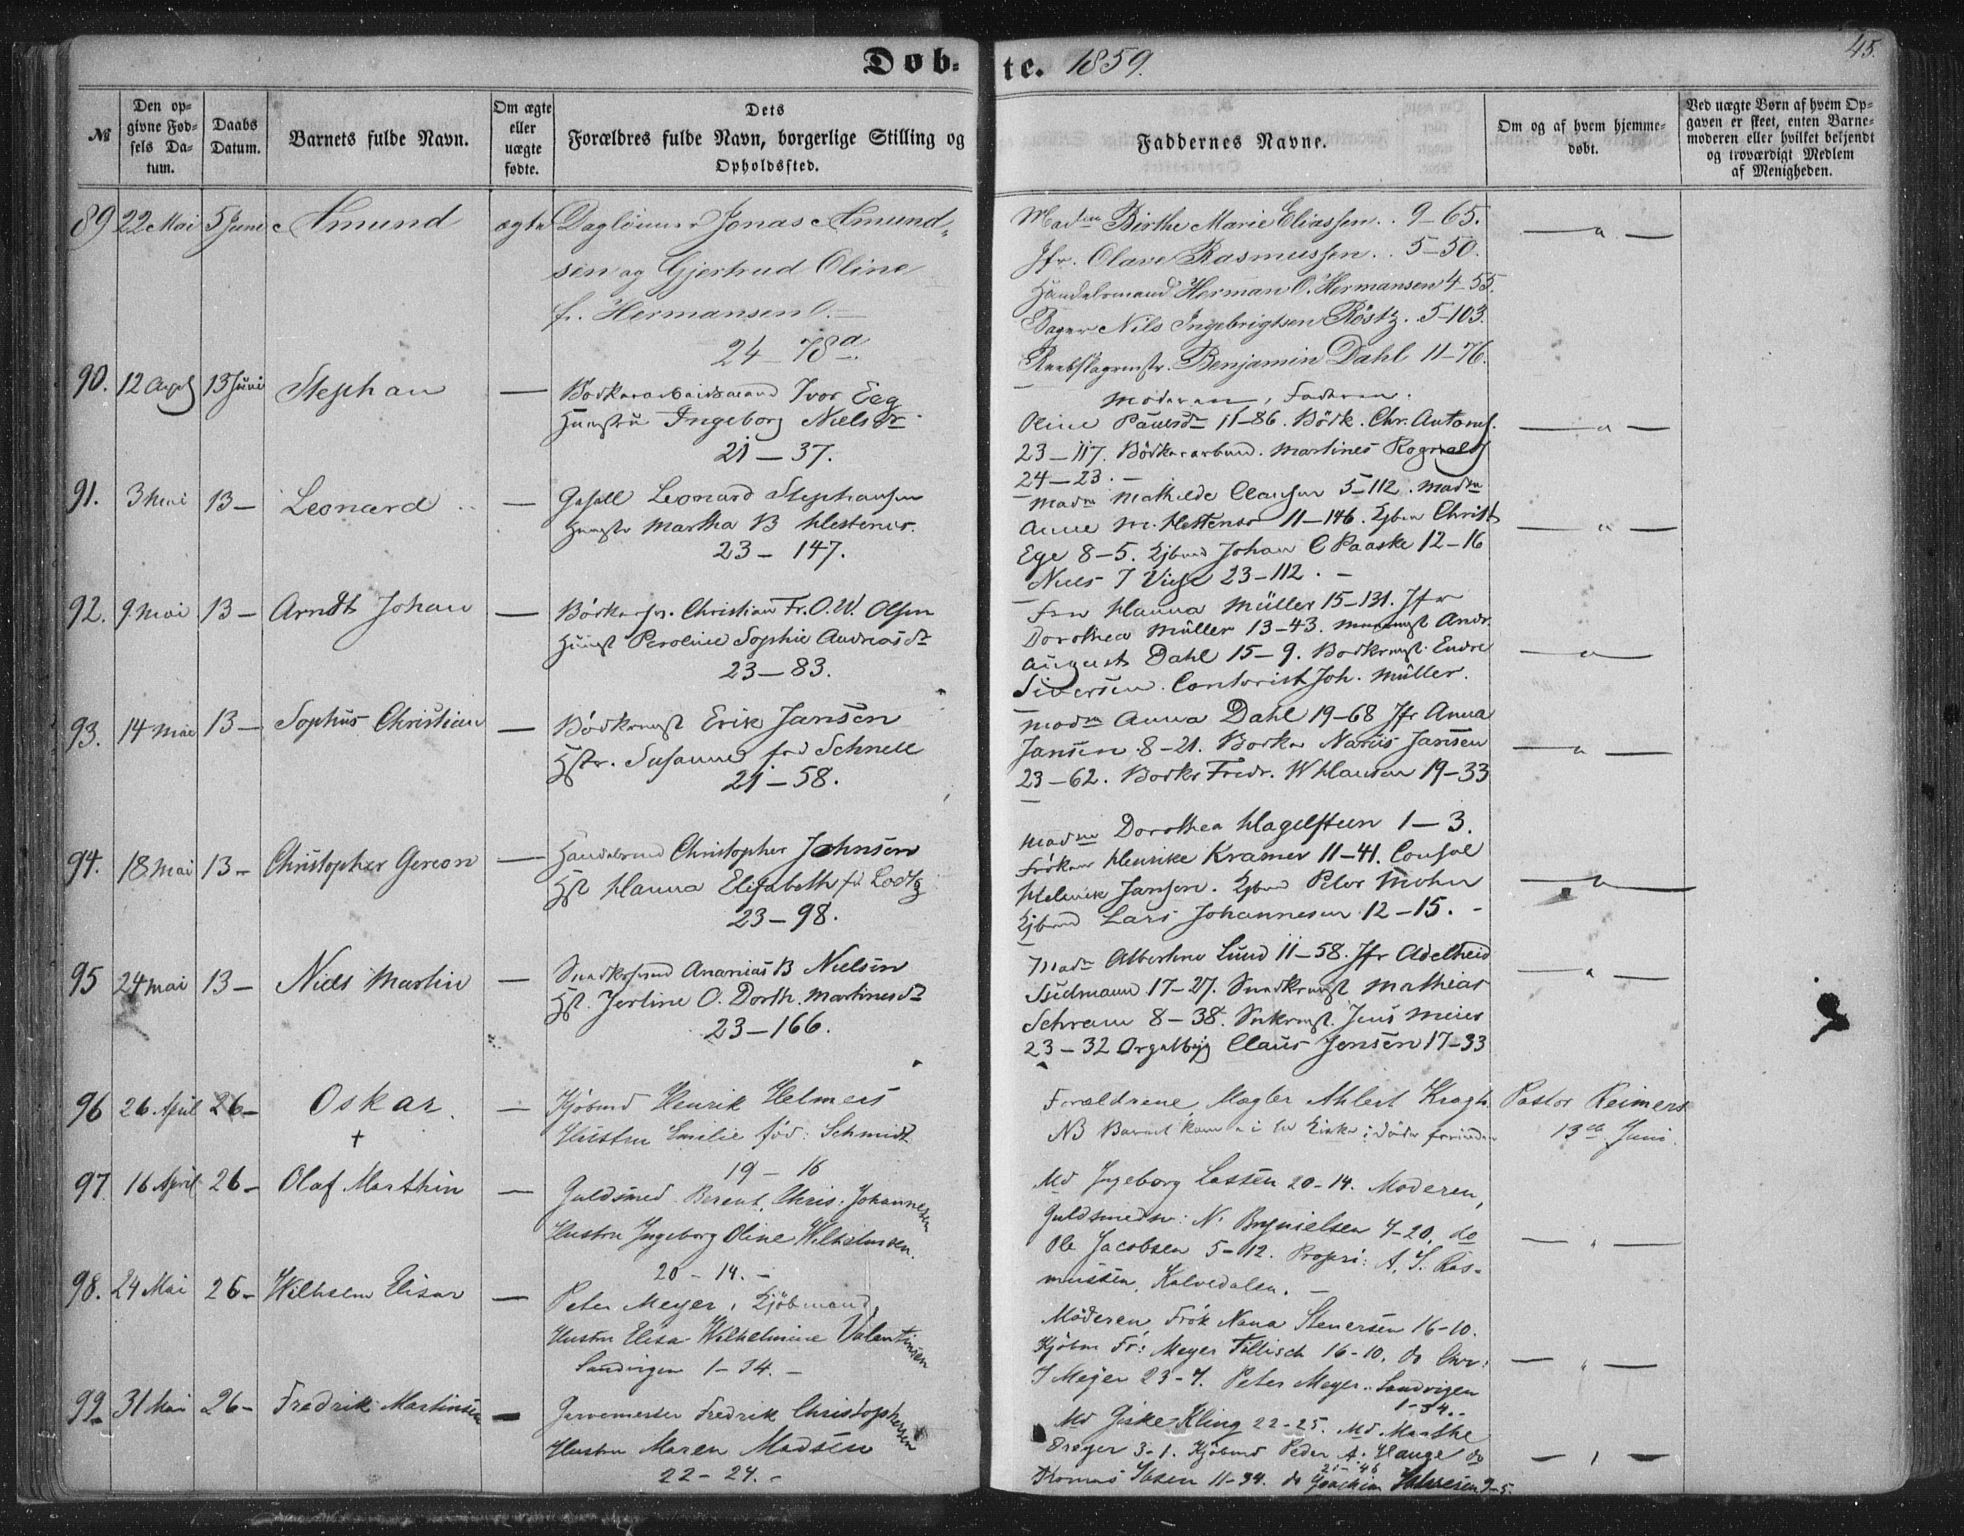 Døb-
te. 1859.
45.
№
Den op-
givne Fød-
sels Da-
tum.
Daabs
Datum.
Barnets fulde Navn.
Om ægte
eller
uægte
fødte.
Dets
Forældres fulde Navn, borgerlige Stilling og
Opholdssted.
Faddernes Navne.
Om og af hvem hjemme-
døbt.
Ved uægte Børn af hvem Op-
gaven er skeet, enten Barne-
moderen eller hvilket bekjendt
og troværdigt Medlem
af Menigheden.
89 22 Mai 5 Juni Amund ægte Daglønner Jonas Amund-
sen og Gjertrud Oline
f. Hermansen
24 78a
Madm Birthe Marie Eliassen .. 9-65.
Jfr. Olave Rasmussen .. 5-50.
Handelsmand Herman O. Hermansen 4-55.
Bager Nils Ingebrigtsen Röstz. 5-103.
Benjamin Dahl 11-76.
90. 12 April 13 Juni Stephan — Bødkerarbeidsmand Iver Eeg
Hustru Ingeborg Nielsdr
21-37.
Moderen, Faderen.
Oline Paulsdr 11-86. Bødk. Chr. Antons.
23-117. Bødkerarbmd. Martines
24-23. -
91. 3 Mai 13- Leonard — Leonard Stephansen
Martha B
23-147.
Madm Mathilde Clausen 5-112. Madm
Anne M. 11-146. Christ
Ege 8-5. Kjbmd Johan C Paaske 12-16
Niels J 23-112. -
92. 9 Mai 13- Arndt Johan — Christian Fr. O. W. Olsen
Hust Peroline Sophie Andreasdr
23-83.
Hanna Müller 15-131. Jfr
Dorothea Müller 13-43. Andr.
August Dahl 15-9. Endre
Siversen. Contorist Joh. Müller.
93. 14 Mai 13- Sophus Christian — Erik Jansen
Hstr. Susanne fød Schnell
21-58.
Madm Anna Dahl 19-68 Jfr Anna
Jansen 8-21. Jansen
23-62. Fredr. W Hansen 19-33
94. 18 Mai 13- Christopher Gereon — Handelsmd Christopher Johnsen
Hst Hanna Elisabeth fd Lootz
23-98.
Madm Dorothea Hagelsteen 1-3.
Frøken Henrike Kramer 11-41. Consul
Janson. Kjbmd Peter Mohn
Kjbmd Lars Johannesen 12-15. -
95 24 Mai 13- Niels Martin — Ananias B Nielsen
Hst. Jertine O. Dorth. Martinesdr
23-166.
Madm Albertine Lund 11-58. Jfr Adelheid
17-27. Mathias
Schram 8-38. Jens Meier
23-32 Claus Jensen 17-33
96 26. April 26- Oskar. — Kjøbmd Henrik Helmers
Hustru Emilie fød: Schmidt
19-16
†
Forældrene, Mægler Ahlert Krogh.
NB Barnet kom
Pastor Reimers
13de Juni.
97. 16 April 26- Olaf Marthin — Guldsmed Berent Chris. Johannesen
Hustru Ingeborg Oline Wilhelmsen.
20-14.-
Md Ingeborg Lassen 20-14. Moderen,
Guldsmedsv: N. Brynielsen 7-20. do
Ole Jacobsen 5-12. Propri: A. S. Ras-
mussen, Kalvedalen. -
98. 24 Mai 26- Wilhelm Elisar — Peter Meyer, Kjøbmand,
Hustru Elisa Wilhelmine Valentinsen
Sandvigen 1-34. -
Moderen, Frøk Nana Stenersen 16-10.
Kjøbm Fr: Meyer Tillisch 16-10. do Chr:
J Mejer 23-7. Peter Meyer, Sandvigen
1-34.-
99 31 Mai 26- Fredrik Martinsen — Garvemester Fredrik Christophersen
Hustru Maren Madsen
22-24. -
Md Giske Kling 22-25. Md Marthe
Dreyer 3-1. Kjøbmd Peder A. Hauge do
21-46
Thomas Ibsen 11-34. do Joachim 9-5.